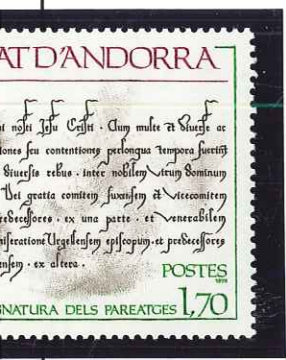 AT D'ANDORRA
nostri Jesu Cristi · Cum multe et diverse ac
iones seu contentiones perlonqua tempora fuerint
diversis rebus · inter nobilem virum dominum
Dei gratia comitem fuxensem et Vicecomitem
predecessores · ex una parte · et venerabilem
miseratione Urgellensem episcopum · et predecessores
ensem · ex altera ·
POSTES
SIGNATURA DELS PAREATGES 1,70